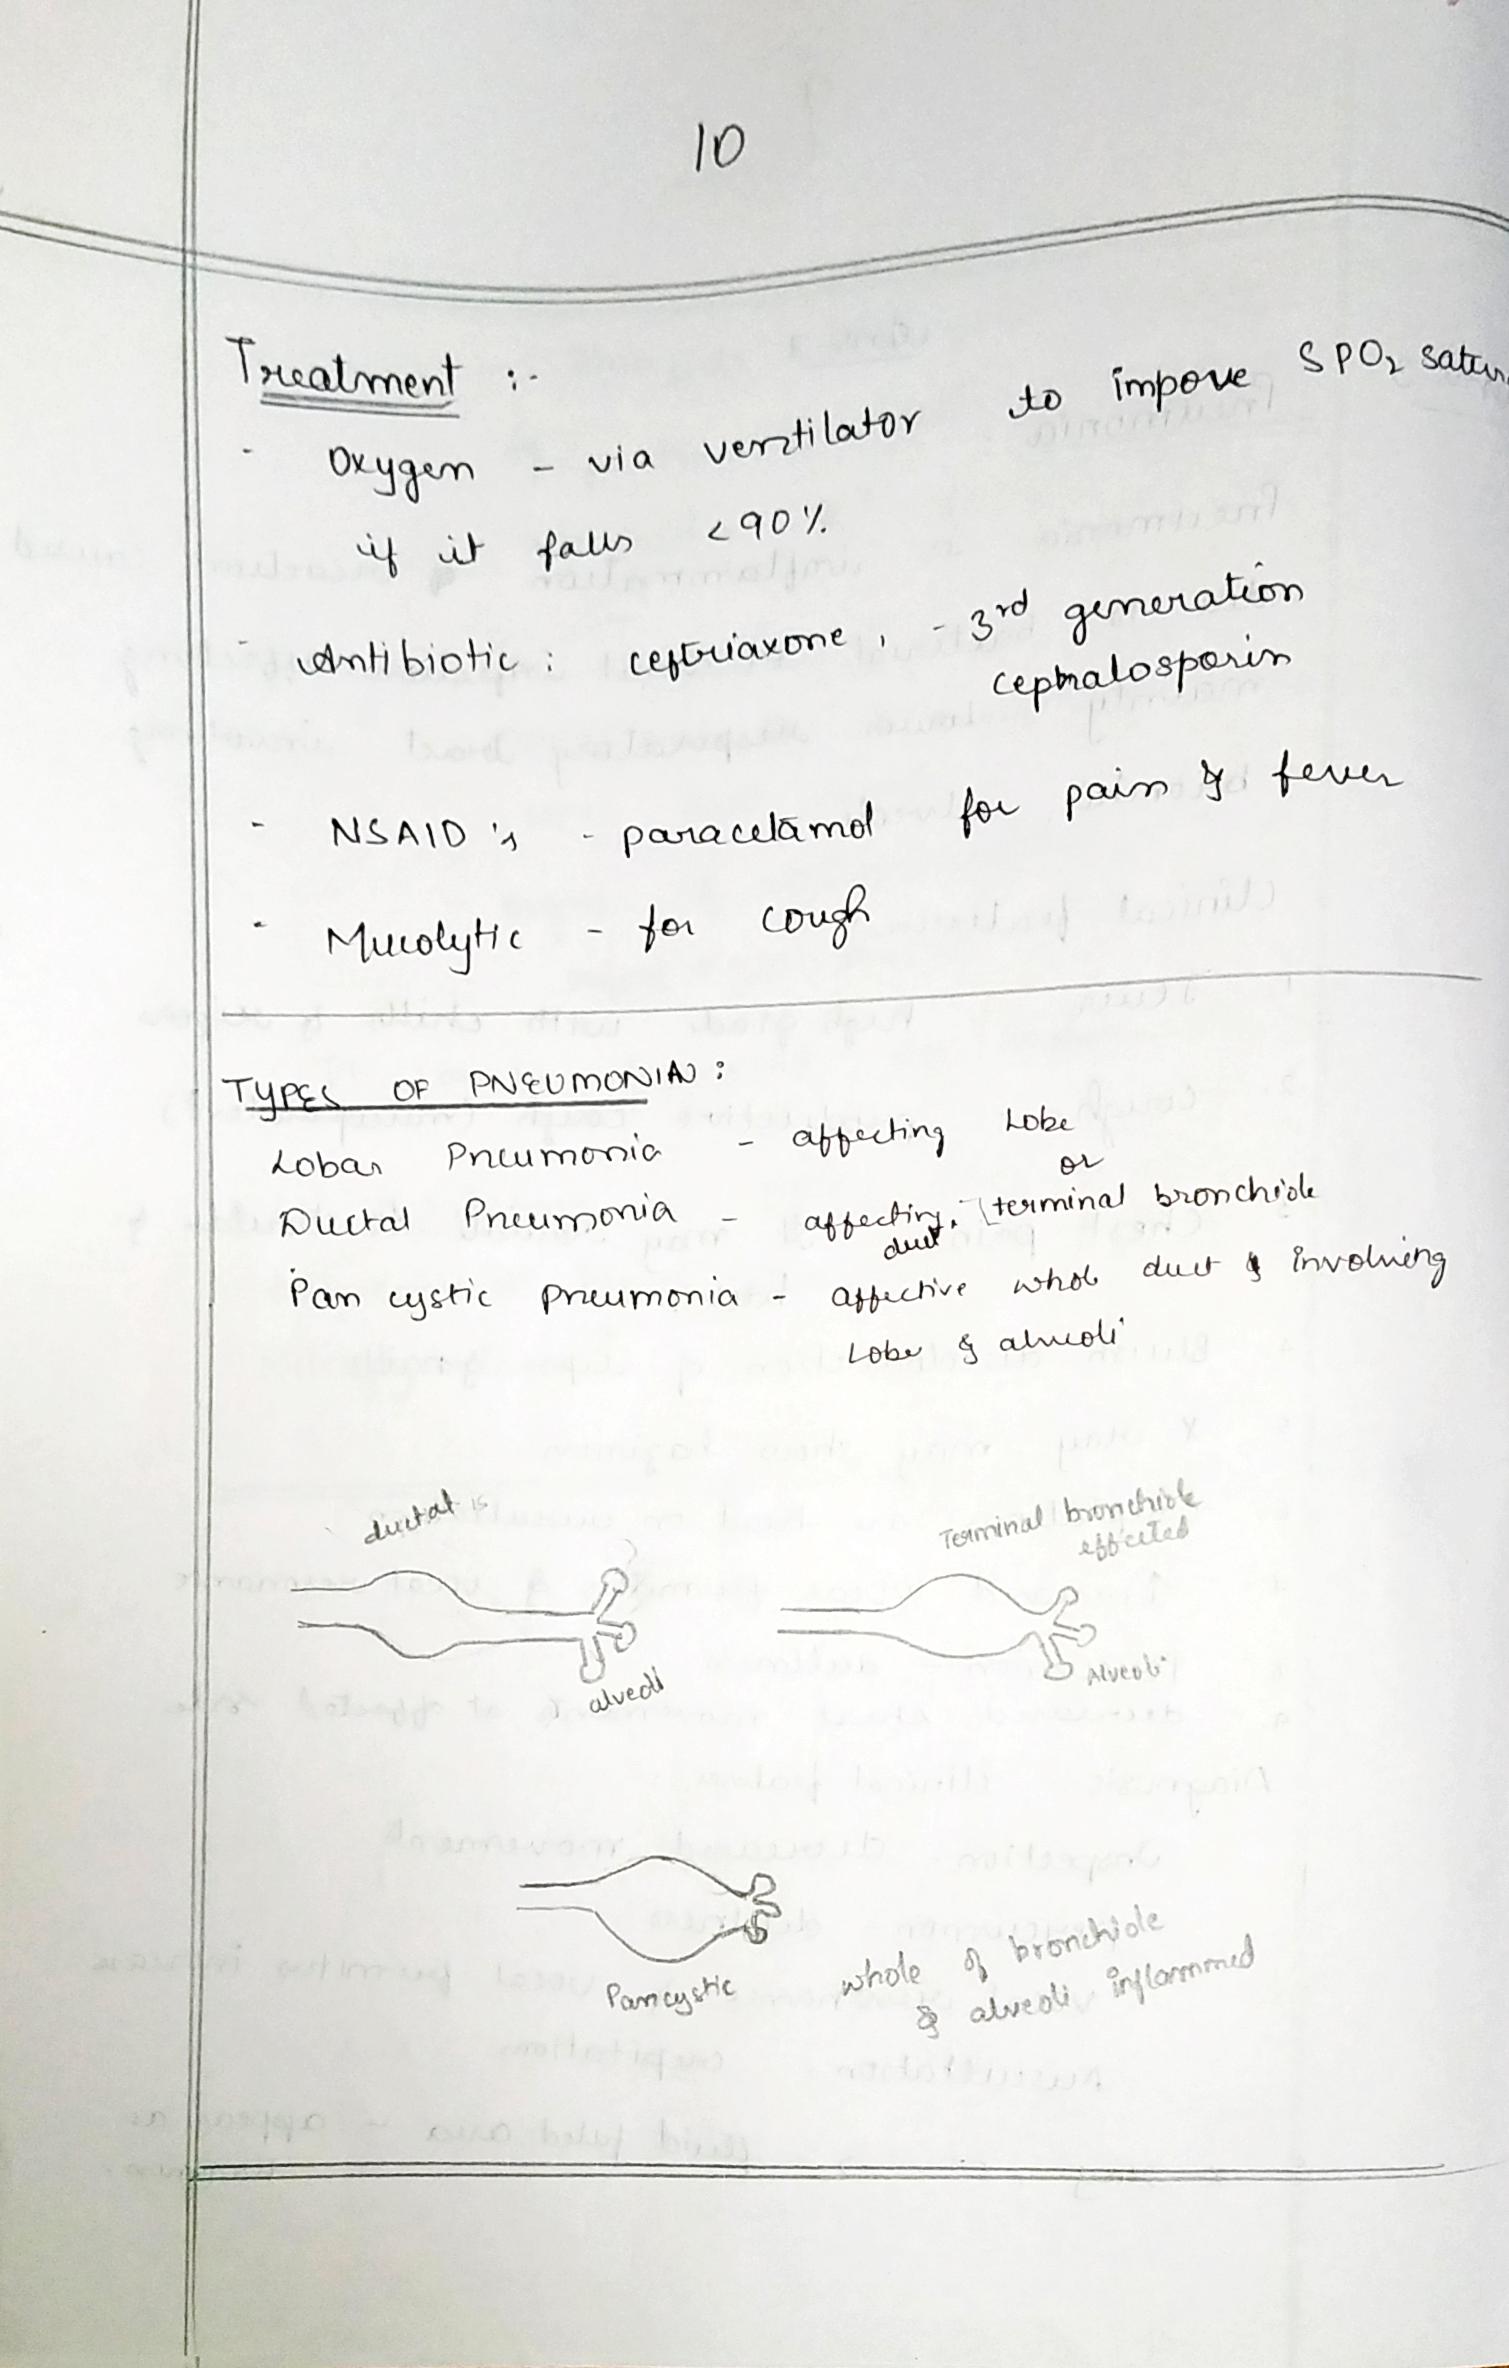 10
Treatment :-
- Oxygen - via ventilator to impove SPO2 satur
if it falls <90%
- Antibiotic : ceftriaxone, - 3rd generation
cephalosporin
- NSAID's - paracetamol for pain & fever
- Mucolytic - for cough
TYPES OF PNEUMONIA :
Lobar Pneumonia - affecting Lobe
Ductal Pneumonia - affecting duct or terminal bronchiole
Pan cystic pneumonia - affective whole duct & involving
Lobe & alveoli
ductal
Terminal bronchiole
effected
alveoli
Alveoli
Pancystic
whole of bronchiole
& alveoli inflammed